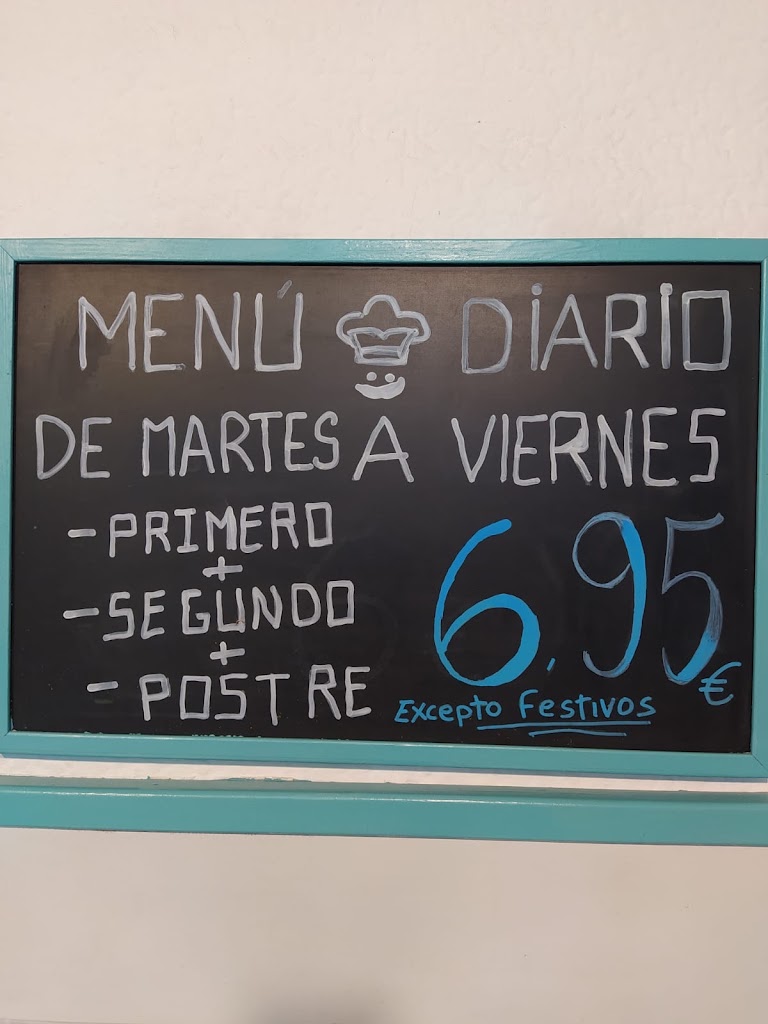 MENÚ DIARIO
DE MARTES A VIERNES
- PRIMERO
+
- SEGUNDO
+
- POSTRE
6,95 €
Excepto Festivos